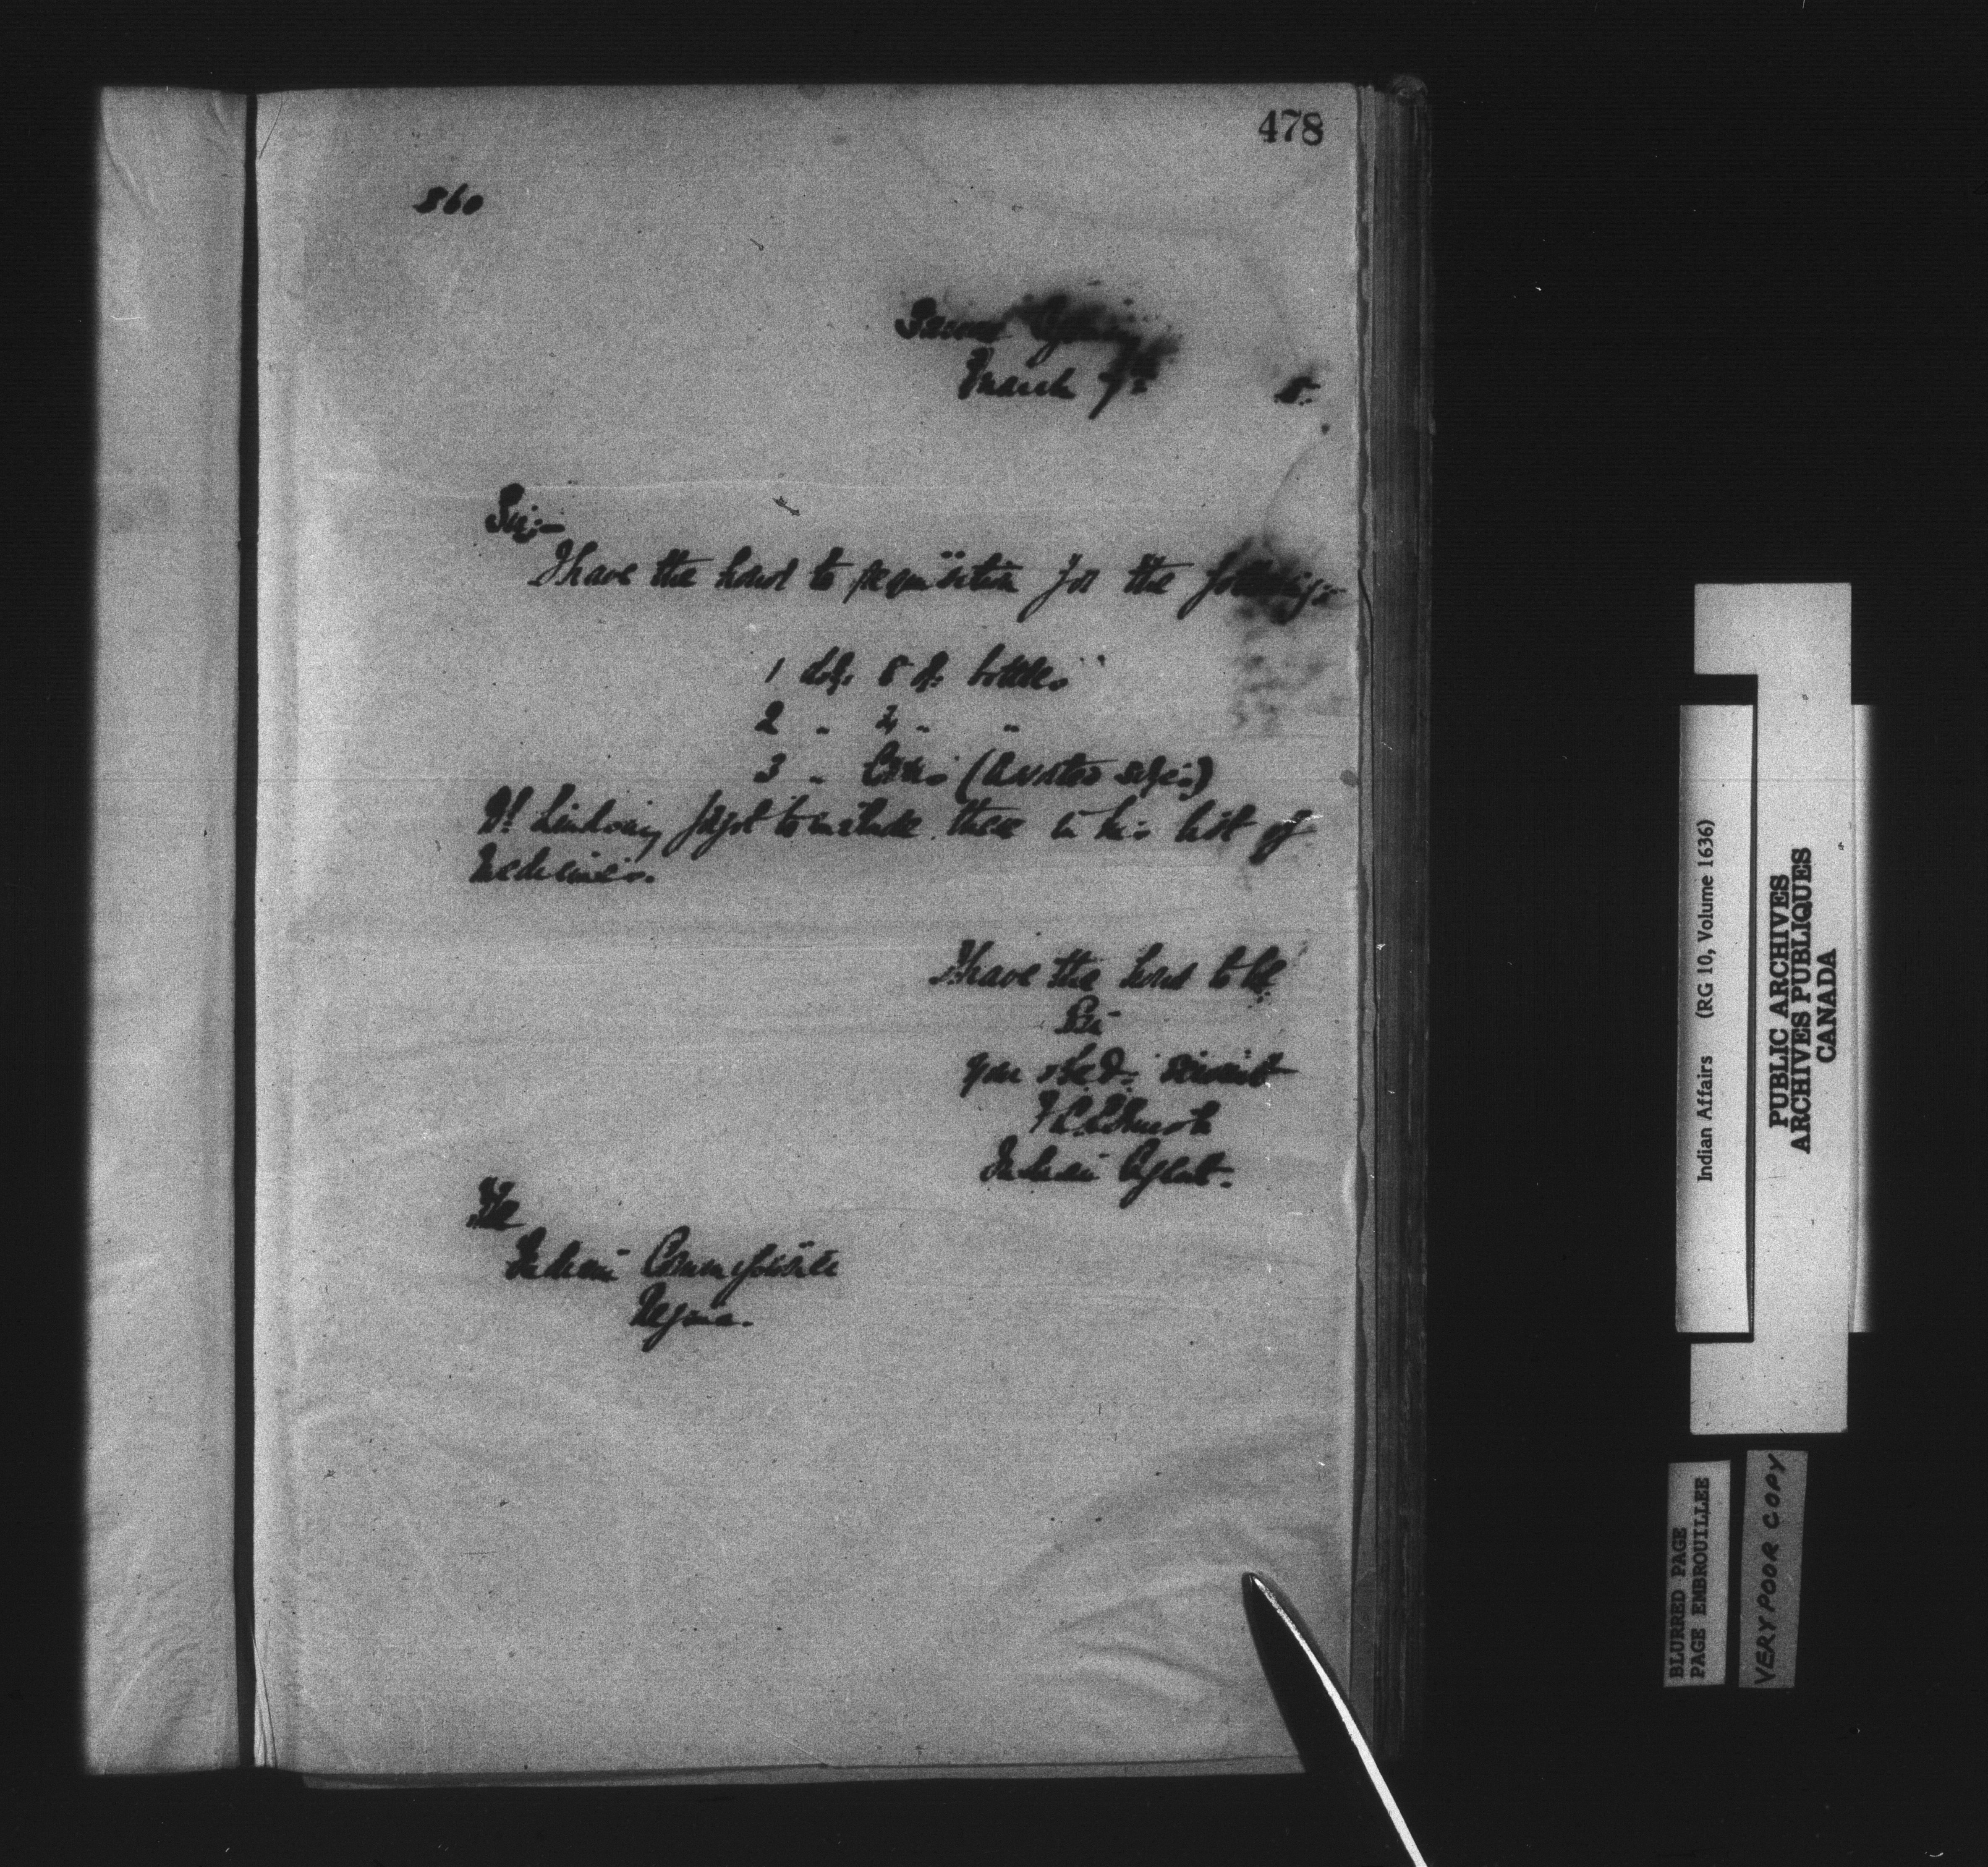 478
860
Agency
March 7th
Sir;-
I have the honor to requisition for the following:-
1 doz. 8 oz. bottles
2 " " "
3 " Corks (assorted sizes)
Dr. Lindsay forgot to include these in his list of
Medicines.
I have the honor to be
Sir
your obed. servant
Indian Agent.
The
Indian Commissioner
Regina.
Indian Affairs (RG 10, Volume 1636)
PUBLIC ARCHIVES
ARCHIVES PUBLIQUES
CANADA
BLURRED PAGE
PAGE EMBROUILLEE
VERY POOR COPY